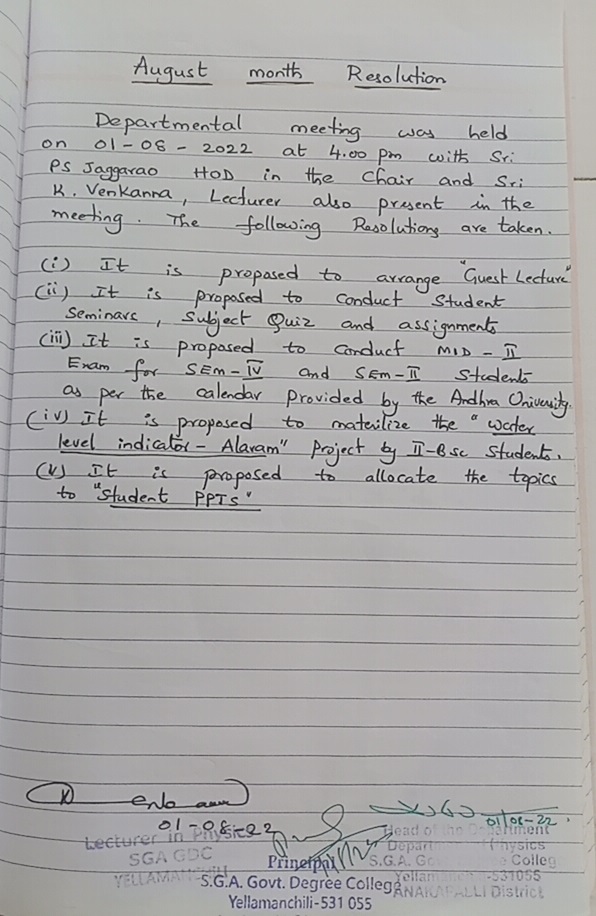 August month Resolution
Departmental meeting was held
on 01-08-2022 at 4.00 pm with Sri
PS Jaggarao HOD in the Chair and Sri
K. Venkanna, Lecturer also present in the
meeting. The following Resolutions are taken.
(i) It is proposed to arrange "Guest Lecture"
(ii) It is proposed to conduct Student
Seminars, Subject Quiz and assignments
(iii) It is proposed to conduct MID-II
Exam for SEM-IV and SEM-II Students
as per the calendar provided by the Andhra University.
(iv) It is proposed to materilize the "water
level indicator - Alaram" project by II-Bsc Students.
(v) It is proposed to allocate the topics
to "Student PPTS"
01-08-22
Lecturer in Physics
SGA GDC
YELLAMANCHILI
Principal
S.G.A. Govt. Degree College
Yellamanchili-531 055
01/08-22
Head of the Department
Department of Physics
S.G.A. Colleg
-531055
ANAKAPALLI District